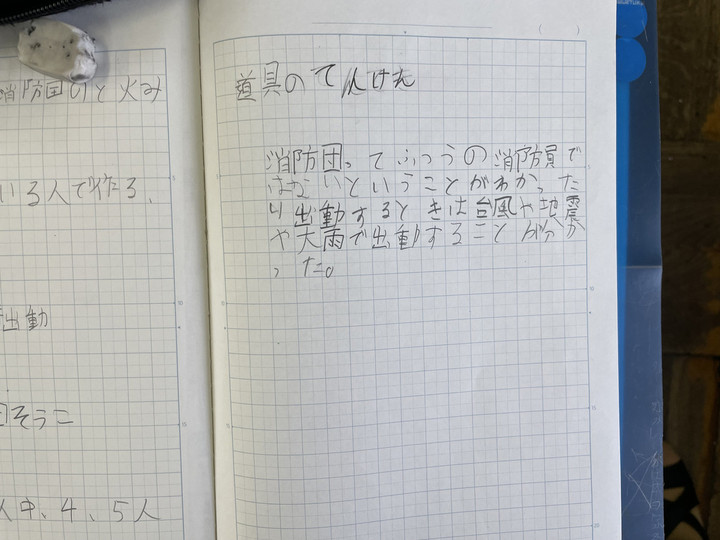 消防団のと火み
いる人で作たる、
出動
そうこ
人中、4、5人
道具のてんけん
消防団ってふつうの消防員で
はないということがわかった
り出動するときは台風や地震
や大雨で出動することが分か
った。